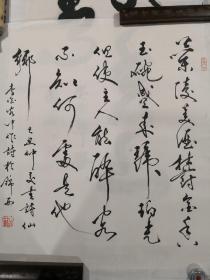 蘭陵美酒鬱金香
玉碗盛来琥珀光
但使主人能醉客
不知何處是他
鄉
仲夏書詩仙
李白客中作詩於